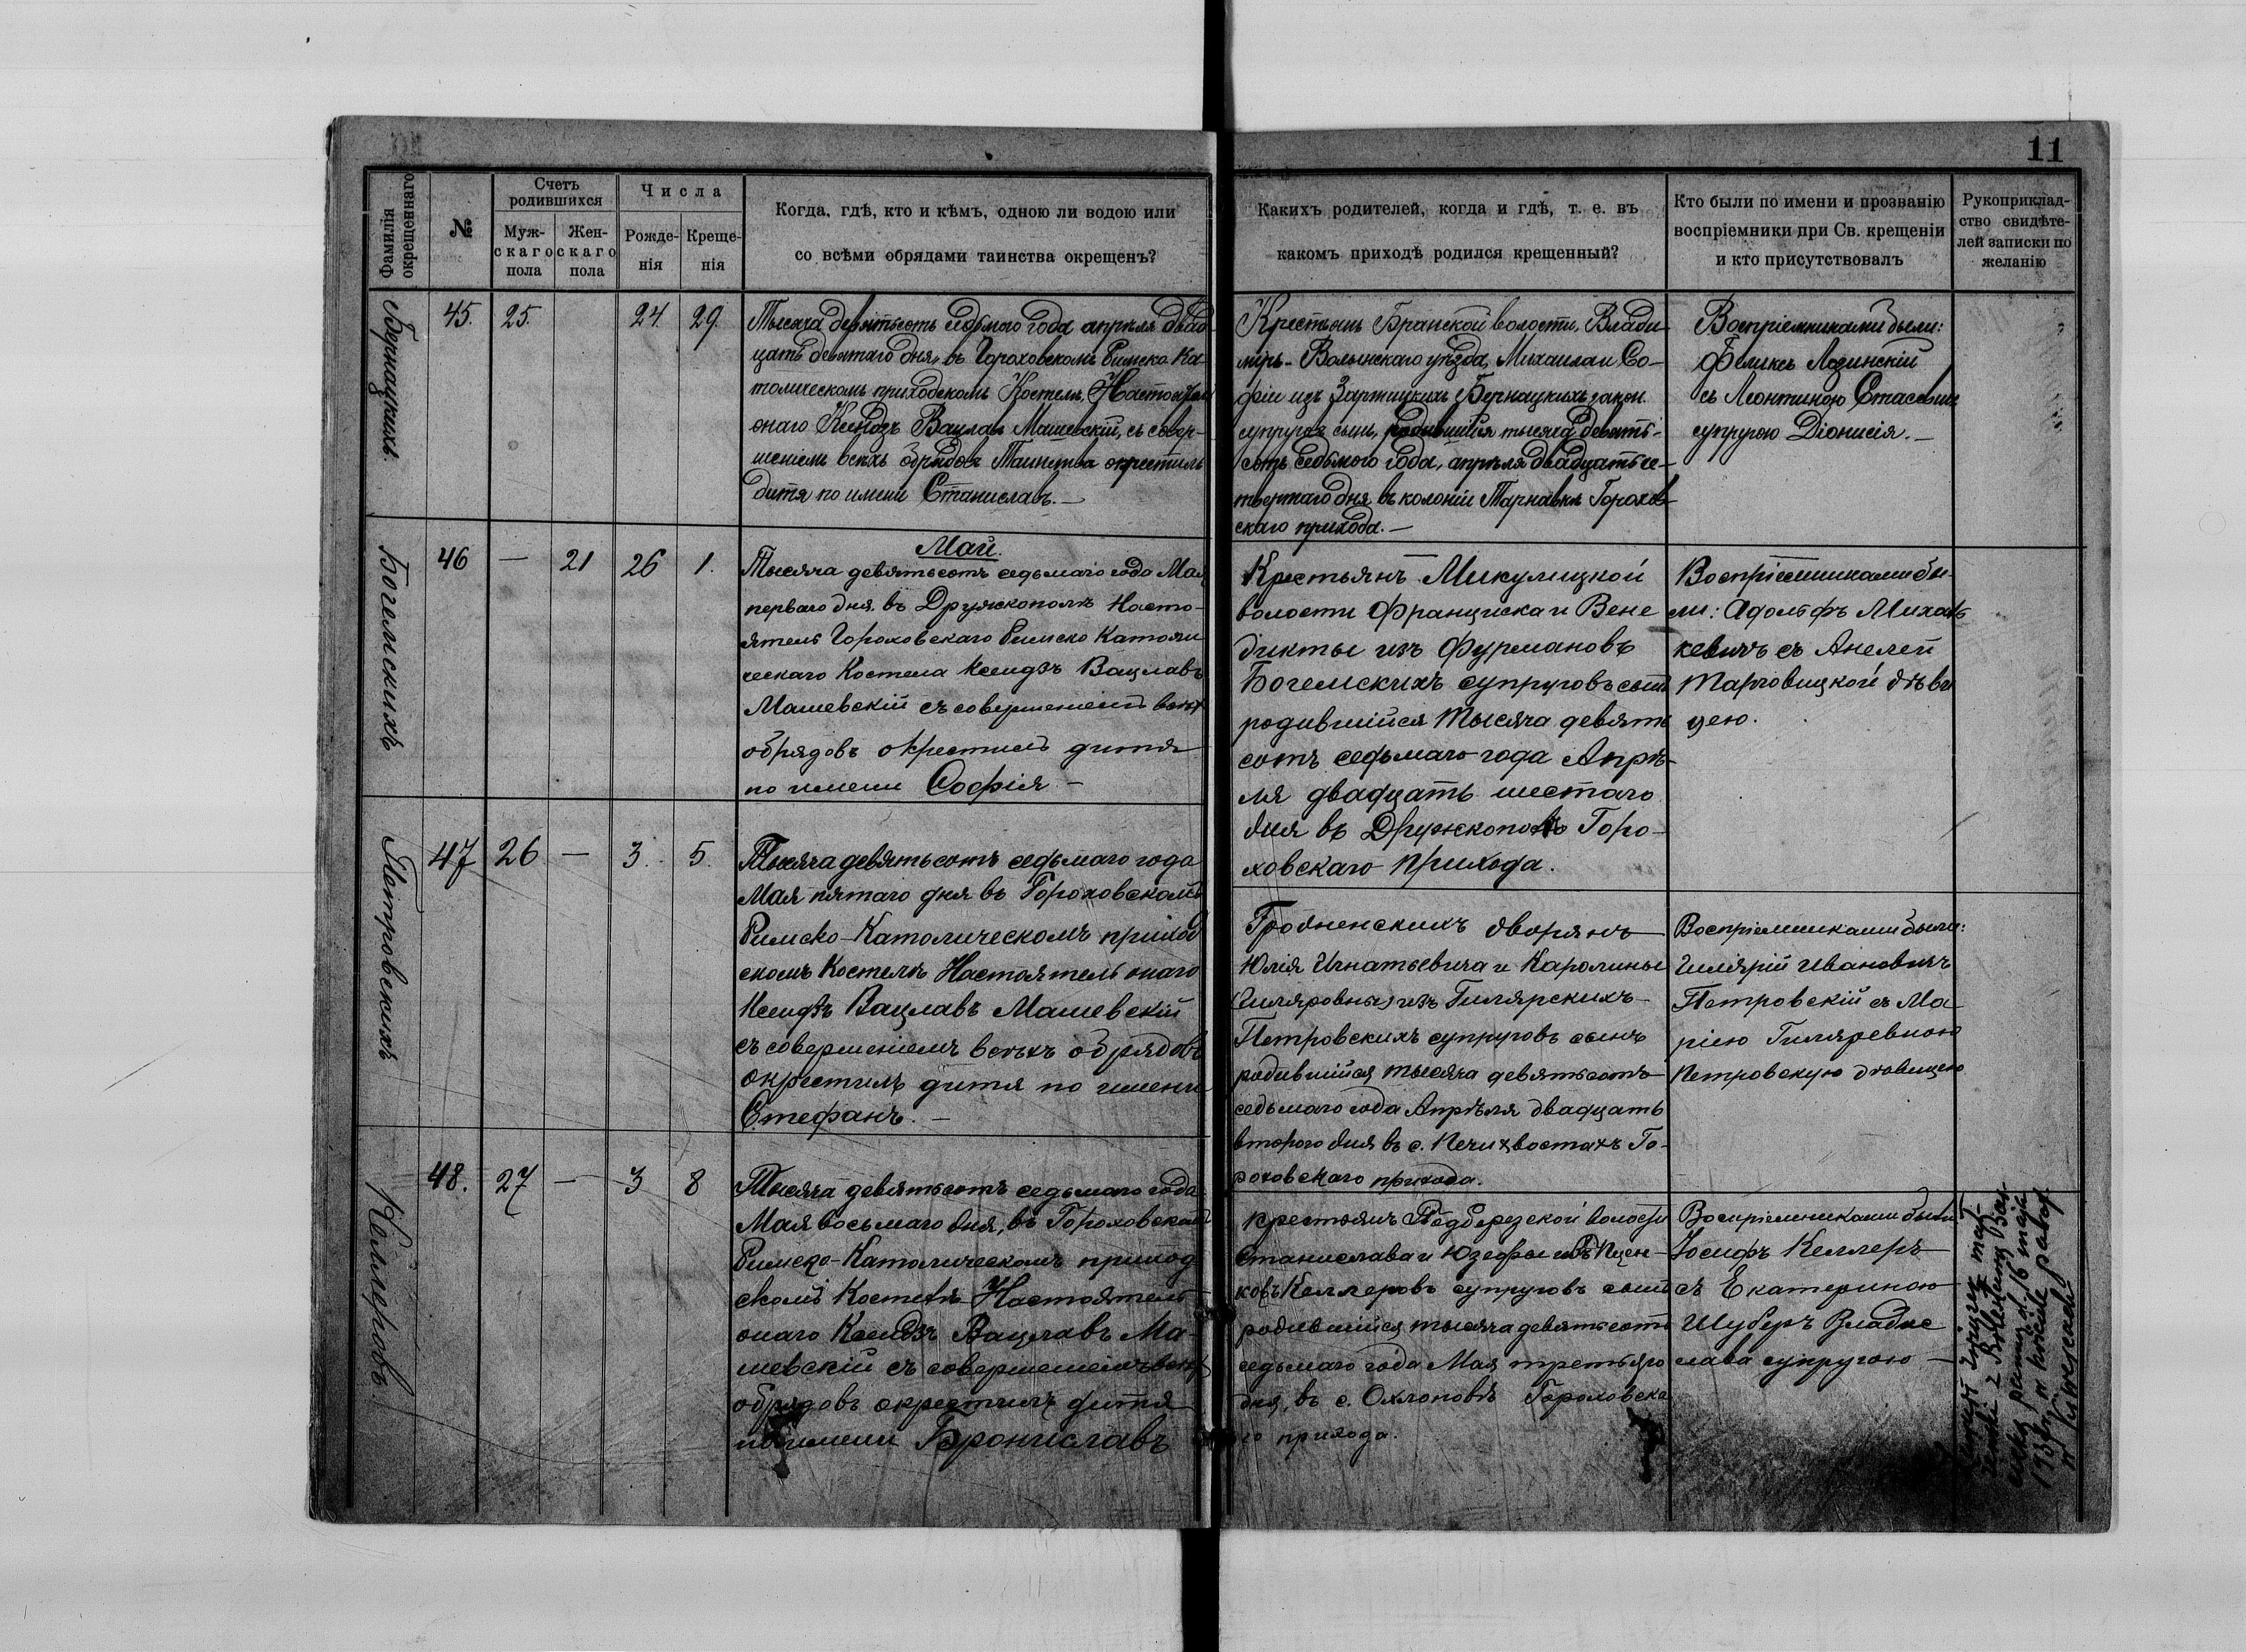 11
Фамилія
окрещеннаго
№
Счетъ
родившихся
Муж-
скаго
пола
Жен-
скаго
пола
Числа
Рожде-
нія
Креще-
нія
Когда, гдѣ, кто и кѣмъ, одною ли водою или
со всѣми обрядами таинства окрещенъ?
Какихъ родителей, когда и гдѣ, т. е. въ
какомъ приходѣ родился крещенный?
Кто были по имени и прозванію
воспріемники при Св. крещеніи
и кто присутствовалъ
Рукоприклад-
ство свидѣте-
лей записки по
желанію
Бернацкихъ.
45. 25. 24. 29.
Тысяча девятьсотъ седьмого года апрѣля двад-
цать девятаго дня, въ Гороховскомъ Римско-Ка-
толическомъ приходскомъ Костелѣ, Настоятель
онаго Ксендзъ Вацлавъ Машевскій, съ совер-
шеніемъ всѣхъ обрядовъ Таинства окрестилъ
дитя по имени Станиславъ. —
Крестьянъ Бранской волости, Влади-
міръ-Волынскаго уѣзда, Михаила и Со-
фіи изъ Заржицкихъ Бернацкихъ закон.
супруговъ сынъ, родившійся тысяча девять-
сотъ седьмого года, апрѣля двадцать че-
твертаго дня, въ колоніи Тарнавкѣ Горохов-
скаго прихода. —
Воспріемниками были:
Феликсъ Лозинскій
съ Леонтиною
супругою Діонисія. —
Богемскихъ
46 — 21 26 1.
Май.
Тысяча девятьсотъ седьмаго года Мая
перваго дня въ Дружкополѣ Насто-
ятель Гороховскаго Римско Католи
ческаго Костела Ксендзъ Вацлавъ
Машевскій съ совершеніемъ всѣхъ
обрядовъ окрестилъ дитя
по имени Софія —
Крестьянъ Микулицкой
волости Франциска и Вене
дикты изъ Фурмановъ
Богемскихъ супруговъ сынъ
родившійся тысяча девять
сотъ седьмаго года Апрѣ-
ля двадцать шестаго
дня въ Дружкополѣ Горо-
ховскаго прихода.
Воспріемниками бы-
ли: Адольфъ Михаль
кевичъ съ Анелей
Тарговицкой дѣви
цею.
Петровскихъ
47 26 — 3. 5.
Тысяча девятьсотъ седьмаго года
Мая пятаго дня въ Гороховскомъ
Римско-Католическомъ приход
скомъ Костелѣ Настоятель онаго
Ксендзъ Вацлавъ Машевскій
съ совершеніемъ всѣхъ обрядовъ
окрестилъ дитя по имени
Стефанъ. —
Гродненскихъ дворянъ
Юлія Игнатьевича и Каролины
(Гиляровны) изъ Гилярскихъ
Петровскихъ супруговъ сынъ
родившійся тысяча девятьсотъ
седьмаго года Апрѣля двадцать
второго дня въ с. Печихвостахъ Го-
роховскаго прихода.
Воспріемниками были:
Гилярій Ивановичъ
Петровскій съ Ма-
ріею Гиляревною
Петровскую дѣвицею
Келлеровъ.
48. 27 — 3 8
Тысяча девятьсотъ седьмаго года
Мая восьмаго дня, въ Гороховскомъ
Римско-Католическомъ приход
скомъ Костелѣ Настоятель
онаго Ксендзъ Вацлавъ Ма-
шевскій съ совершеніемъ всѣхъ
обрядовъ окрестилъ дитя
по имени Брониславъ
Крестьянъ Подберезской волости
Станислава и Юзефы изъ
Келлеровъ супруговъ сынъ
родившійся тысяча девятьсотъ
седьмаго года Мая третьяго
дня, въ с. Охлоповѣ Гороховска
го прихода.
Воспріемниками были
Іосифъ Келлеръ
съ Екатериною
Шуберъ Владис
лава супругою —